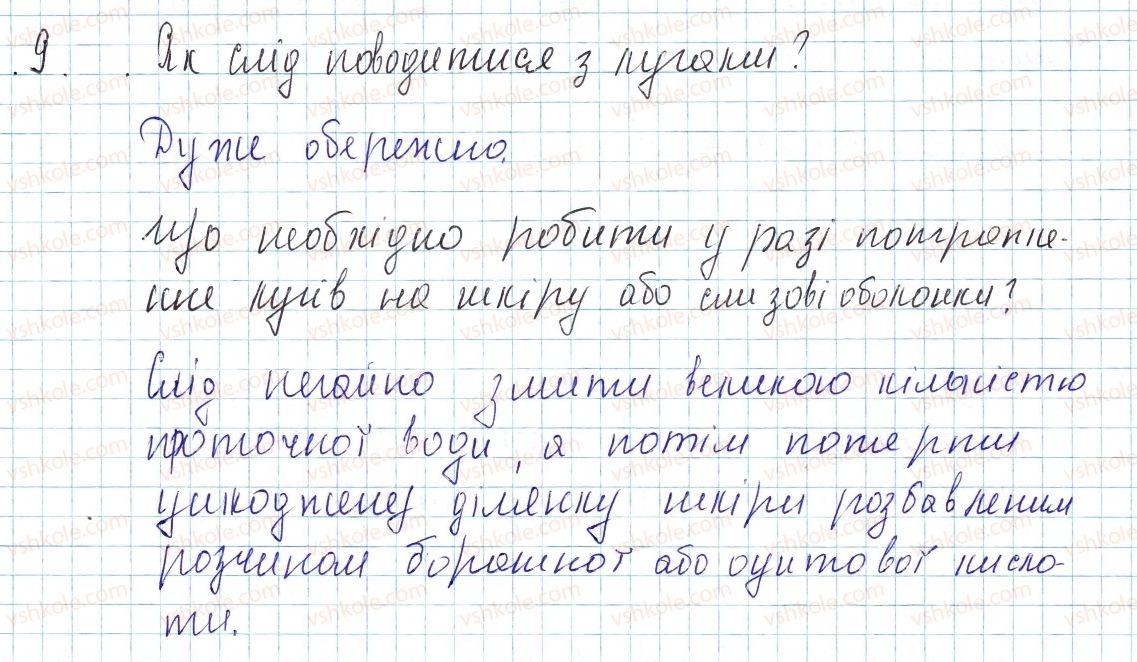 9. Як слід поводитися з лугами?
Дуже обережно.
Що необхідно робити у разі потраплян-
ня лугів на шкіру або слизові оболонки?
Слід негайно змити великою кількістю
проточної води, а потім потерти
ушкоджену ділянку шкіри розбавленим
розчином боратної або оцитової кисло-
ти.